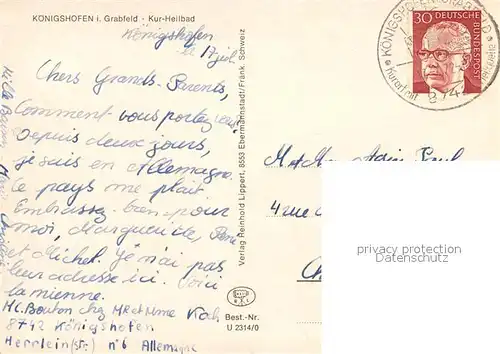 KÖNIGSHOFEN i. Grabfeld · Kur-Heilbad
Königshofen
le 17 juil.
Chers Grands-Parents,
Comment vous portez vous?
Depuis deux jours,
je suis en Allemagne.
Le pays me plait
Embrassez bien pour
moi, Marguerite, René
et Michel. Je n'ai pas
leur adresse ici. Voici
la mienne.
M.C. Bouton chez MR et Mme Koch
8742 Königshofen
Herrlein (Str) n°6 Allemagne
Verlag Reinhold Lippert, 8553 Ebermannstadt/Fränk. Schweiz
Best.-Nr.
U 2314/0
KÖNIGSHOFEN
8742
30 DEUTSCHE
BUNDESPOST
4 rue
privacy protection
Datenschutz